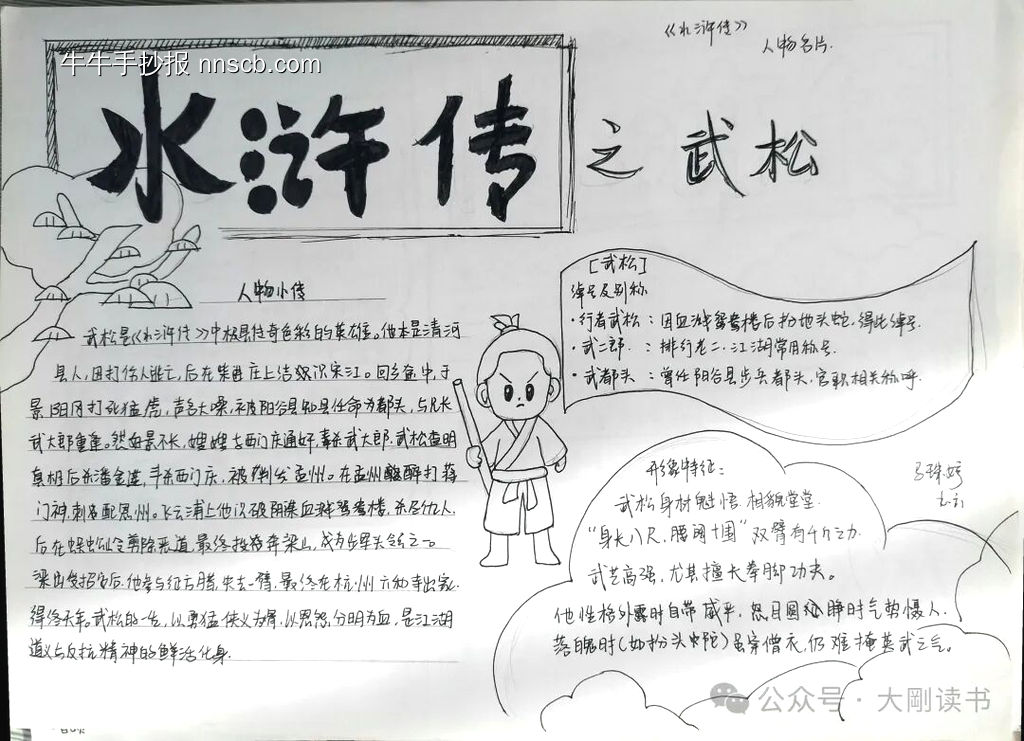 《水浒传》
人物名片.
牛牛手抄报 nnscb.com
水浒传之武松
人物小传
武松是《水浒传》中极具传奇色彩的英雄。他本是清河
县人,因打伤人逃亡,后在柴进庄上结识宋江。回乡途中,于
景阳冈打死猛虎,声名大噪,被阳谷县知县任命为都头,与兄长
武大郎重逢。然好景不长,嫂嫂与西门庆通奸,毒杀武大郎。武松查明
真相后杀潘金莲,斗杀西门庆,被判发孟州。在孟州醉打蒋
门神,刺配恩州。飞云浦上他识破阴谋血溅鸳鸯楼,杀尽仇人,
后在蜈蚣岭剪除恶道,最终投奔梁山,成为步军头领之一。
梁山受招安后,他参与征方腊,失去一臂,最终在杭州六和寺出家,
得终天年。武松的一生,以勇猛侠义为骨,以恩怨分明为血,是江湖
道义与反抗精神的鲜活化身.
[武松]
绰号及别称
·行者武松:因血溅鸳鸯楼后扮地头蛇,得此绰号.
·武二郎.:排行老二,江湖常用称号.
·武都头:曾任阳谷县步兵都头,官职相关称呼.
形象特征:
武松身材魁悟,相貌堂堂.
"身长八尺,腰阔十围"双臂有千斤之力.
武艺高强,尤其擅长拳脚功夫。
他性格外露时自带威严,怒目圆睁时气势慑人.
落魄时(如扮头陀)虽穿僧衣,仍难掩英武之气。
公众号·大剛读书